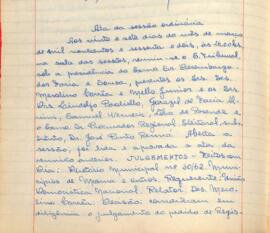 Ata da sessão ordinária
Aos vinte e sete dias do mês de março
de mil novecentos e sessenta e dois, às
na sala das sessões, reuniu-se o E. Tribunal,
sob a presidência do Exmo. Sr. Desembarga-
dor Faria e Sousa, presentes os Srs. Des.
Merolino Corrêa e Mello Junior e os Srs.
Drs. Paolielo, de Faria
, Samuel Werneck, de Rezende e
o Exmo. Dr. Procurador Regional Eleitoral, subs-
tituto, Dr. José Pinto Renná. Aberta a
sessão, foi lida e aprovada a ata da
reunião anterior. JULGAMENTOS - Feitos em
Dia: Diretório Municipal nº 30/62. Muni-
cípios de e outros. Requerente: União
Democrática Nacional. Relator: Des. Mero-
lino Corrêa. Decisão: converteram em
diligência o julgamento do pedido de regis-